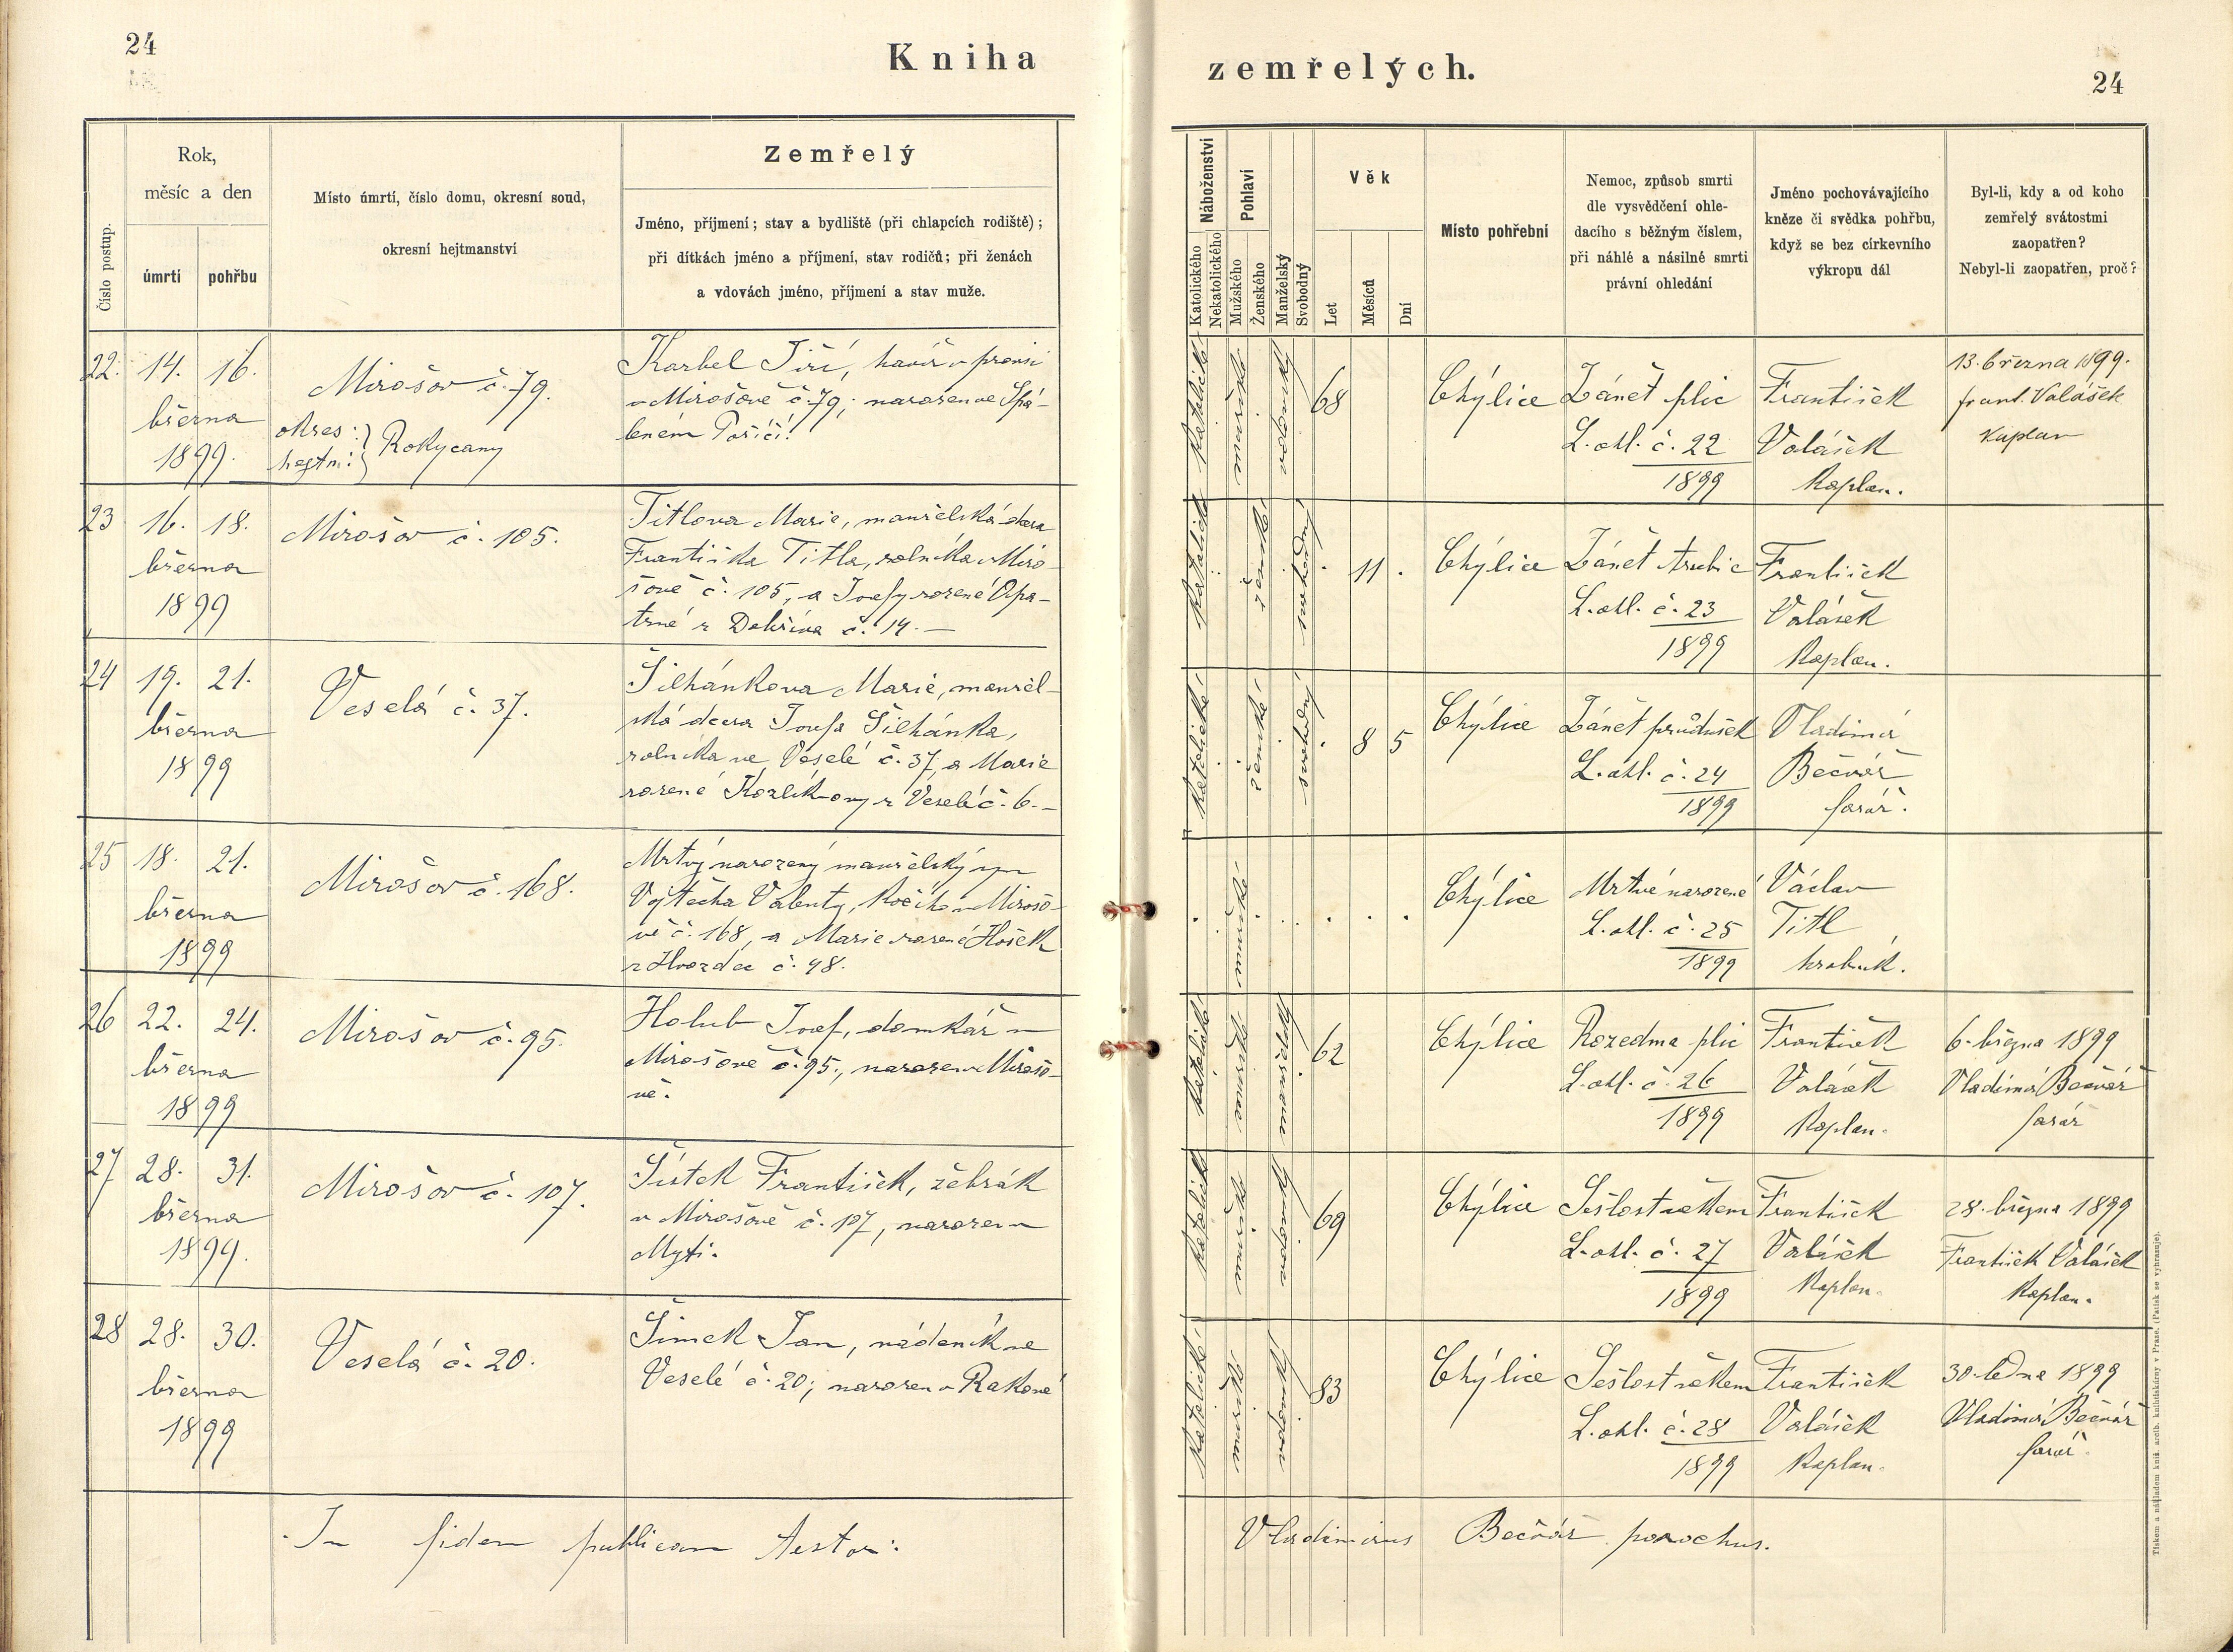 24
Kniha
zemřelých.
24
Číslo postup.
Rok,
měsíc a den
úmrtí
pohřbu
Místo úmrtí, číslo domu, okresní soud,
okresní hejtmanství
Zemřelý
Jméno, příjmení; stav a bydliště (při chlapcích rodiště);
při dítkách jméno a příjmení, stav rodičů; při ženách
a vdovách jméno, příjmení a stav muže.
Náboženství
Katolického
Nekatolického
Pohlaví
Mužského
Ženského
Manželský
Svobodný
Věk
Let
Měsíců
Dní
Místo pohřební
Nemoc, způsob smrti
dle vysvědčení ohle-
dacího s běžným číslem,
při náhlé a násilné smrti
právní ohledání
Jméno pochovávajícího
kněze či svědka pohřbu,
když se bez církevního
výkropu dál
Byl-li, kdy a od koho
zemřelý svátostmi
zaopatřen?
Nebyl-li zaopatřen, proč?
22. 14. 16.
března
1899.
Mirošov č. 79.
okres:
hejtm: } Rokycany
Korbel Jiří, havíř v
v Mirošově č. 79; narozen ve Spá-
leném Poříčí.
katolické
mužské
vdovský
68
Chýlice
Zánět plic
L. ohl. č. 22
1899
František
Valášek
Kaplan.
13. března 1899.
Frant. Valášek
Kaplan
23 16. 18.
března
1899
Mirošov č. 105.
Titlova Marie, manželská dcera
Františka Titla, rolníka v Miro-
šově č. 105, a Josefy rozené Opa-
trné z č. 14. —
katolické
ženské
svobodný
. 11 .
Chýlice
Zánět
L. ohl. č. 23
1899
František
Valášek
Kaplan.
24 19. 21.
března
1899
Veselá č. 37.
Šilhánkova Marie, manžel-
ská dcera Josefa Šilhánka,
rolníka ve Veselé č. 37, a Marie
rozené Kozlíkovy z Veselé č. 6. —
katolické
ženské
svobodný
. 8 5
Chýlice
Zánět průdušek
L. ohl. č. 24
1899
Vladimír
Bečvář
farář.
25 18. 21.
března
1899
Mirošov č. 168.
Mrtvý narozený manželský syn
Vojtěcha Valenty, kočího v Mirošo-
vě č. 168, a Marie rozené Hošek
z Hvozdce č. 48.
mužské
Chýlice
Mrtvě narozené
L. ohl. č. 25
1899
Václav
Titl
hrobník.
26 22. 24.
března
1899
Mirošov č. 95.
Holub Josef, domkář v
Mirošově č. 95., narozen v Mirošo-
vě.
katolické
mužské
manželský
62
Chýlice
Rozedma plic
L. ohl. č. 26
1899
František
Valášek
Kaplan.
6. března 1899
Vladimír Bečvář
farář
27 28. 31.
března
1899.
Mirošov č. 107.
Šístek František, žebrák
v Mirošově č. 107, narozen v
Mýtě.
katolické
mužské
vdovský
69
Chýlice
Sešlost věkem
L. ohl. č. 27
1899
František
Valášek
Kaplan.
28. března 1899
František Valášek
Kaplan.
28 28. 30.
března
1899
Veselá č. 20.
Šimek Jan, nádeník ve
Veselé č. 20; narozen v Rakové
katolické
mužské
vdovský
83
Chýlice
Sešlost věkem
L. ohl. č. 28
1899
František
Valášek
Kaplan.
30. ledna 1899
Vladimír Bečvář
farář.
In fidem publicam testor:
Vladimirus Bečvář parochus.
Tiskem a nákladem kníž. arcib. knihtiskárny v Praze. (Patisk se vyhrazuje).